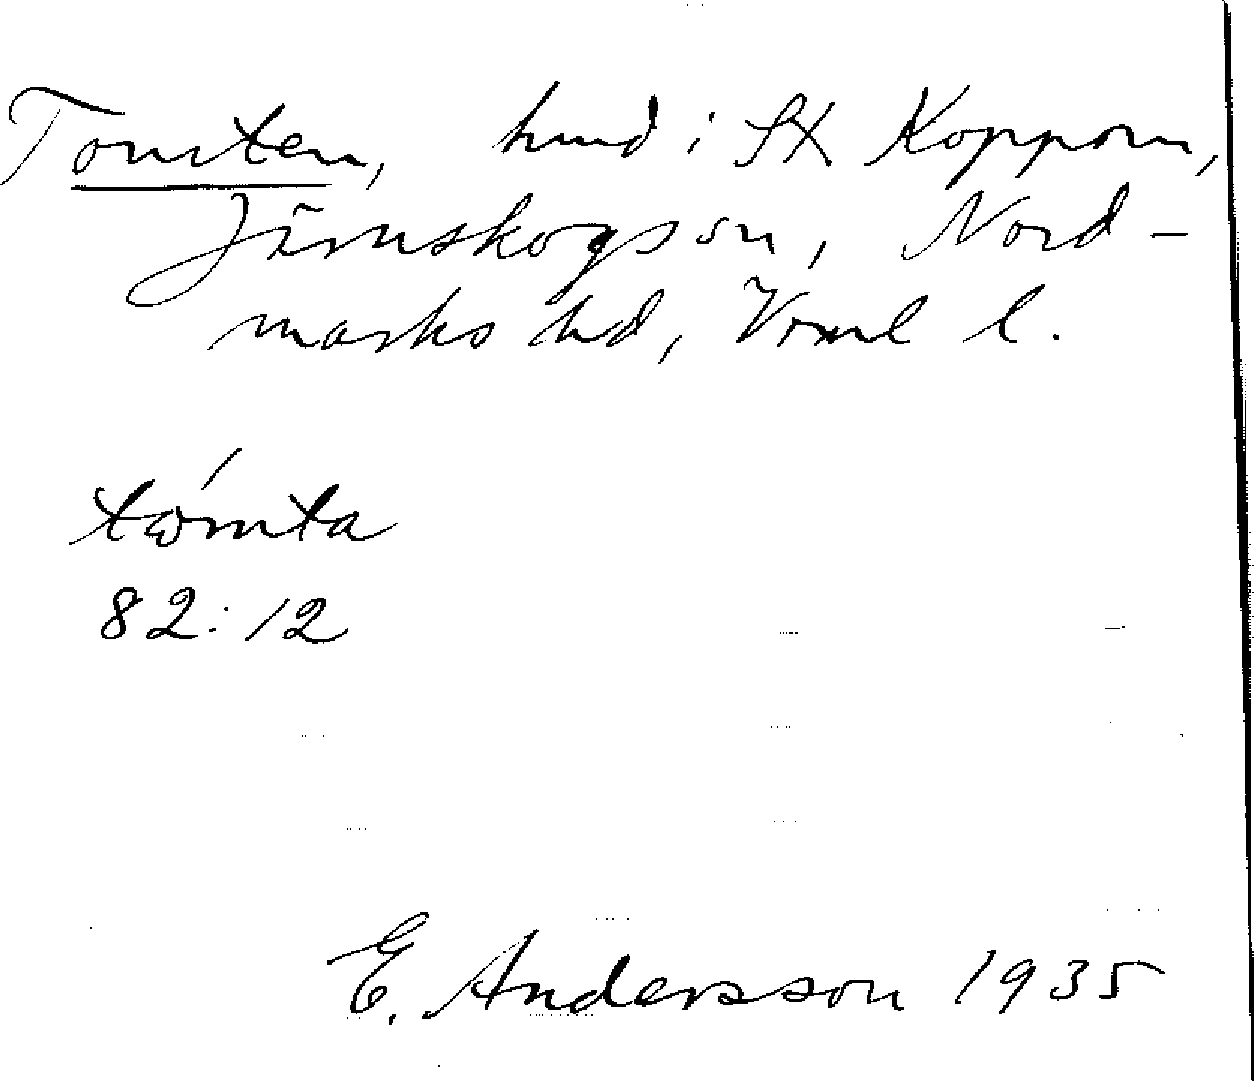 Tomten, hmd i St Koppom,
Järnskogs sn, Nord-
marks hd, Vrml l.
tωḿta
82:12
E. Andersson 1935